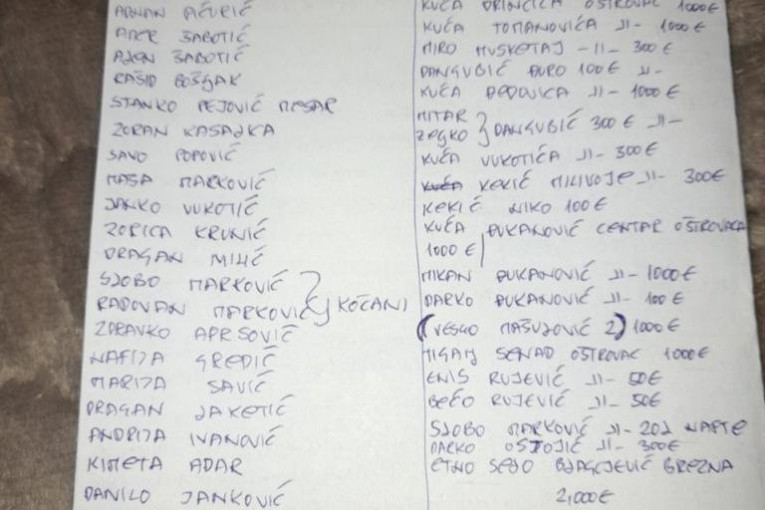 ADNAN PIĆURIĆ
ADER ŠABOTIĆ
AJEN ŠABOTIĆ
RAŠID BOŠJAK
STANKO PEJOVIĆ MESAR
ZORAN KASAJKA
SAVO POPOVIĆ
MAŠA MARKOVIĆ
JANKO VUKOTIĆ
ZORICA KRUNIĆ
DRAGAN MILIĆ
SLOBO MARKOVIĆ
RADOVAN MARKOVIĆ } KOČANI
ZDRAVKO APRSOVIĆ
NAFIJA GREDIĆ
MARIJA SAVIĆ
DRAGAN JAKETIĆ
ANDRIJA IVANOVIĆ
KIMETA ADAR
DANILO JANKOVIĆ
KUĆA DRINČIĆA OŠTROVAC 1000€
KUĆA TOMANOVIĆA -II- 1000€
MIRO MUSKETAJ -II- 300€
DANGUBIĆ ĐURO 100€ -II-
KUĆA DEDOVICA -II- 1000€
MITAR
ZELJKO } DANGUBIĆ 300€ -II-
KUĆA VUKOTIĆA -II- 300€
KEKIĆ MILIVOJE -II- 300€
KEKIĆ NIKO 100€
KUĆA ĐUKANOVIĆ CENTAR OŠTROVACA
1000€
MIKAN ĐUKANOVIĆ -II- 1000€
DARKO ĐUKANOVIĆ -II- 100€
(VESKO MAŠULOVIĆ 2) 1000€
SENAD OŠTROVAC 1000€
ENIS RUJEVIĆ -II- 50€
BEĆO RUJEVIĆ -II- 50€
SLOBO MARKOVIĆ -II- 20L NAFTE
DARKO OSTOJIĆ -II- 300€
ETNO SELO BREZNA
2,000€